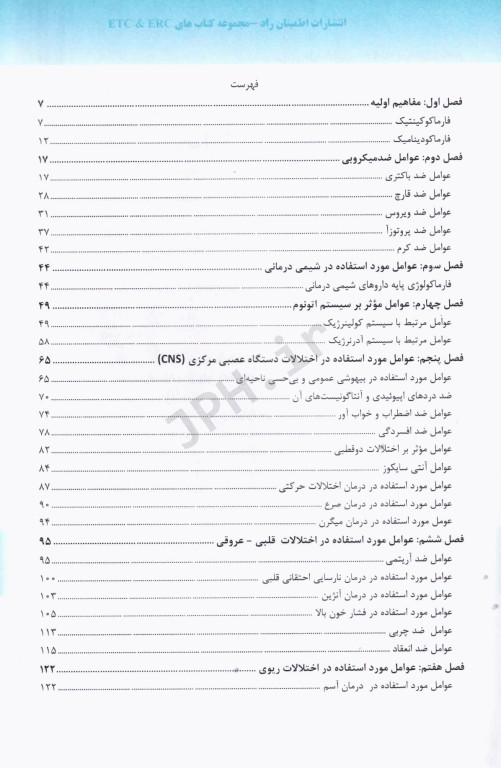 انتشارات اطمینان راد -مجموعه کتاب های ETC & ERC
فهرست
فصل اول: مفاهیم اولیه ۷
فارماکوکینتیک ۷
فارماکودینامیک ۱۲
فصل دوم: عوامل ضدمیکروبی ۱۷
عوامل ضد باکتری ۱۷
عوامل ضد قارچ ۲۸
عوامل ضد ویروس ۳۱
عوامل ضد پروتوزآ ۳۷
عوامل ضد کرم ۴۲
فصل سوم: عوامل مورد استفاده در شیمی درمانی ۴۴
فارماکولوژی پایه داروهای شیمی درمانی ۴۴
فصل چهارم: عوامل مؤثر بر سیستم اتونوم ۴۹
عوامل مرتبط با سیستم کولینرژیک ۴۹
عوامل مرتبط با سیستم آدرنرژیک ۵۸
فصل پنجم: عوامل مورد استفاده در اختلالات دستگاه عصبی مرکزی (CNS) ۶۵
عوامل مورد استفاده در بیهوشی عمومی و بی‌حسی ناحیه‌ای ۶۵
ضد دردهای اپیوئیدی و آنتاگونیست‌های آن ۷۰
عوامل ضد اضطراب و خواب آور ۷۴
عوامل ضد افسردگی ۷۸
عوامل مؤثر بر اختلالات دوقطبی ۸۲
عوامل آنتی سایکوز ۸۴
عوامل مورد استفاده در درمان اختلالات حرکتی ۸۷
عوامل مورد استفاده در درمان صرع ۹۰
عومل مورد استفاده در درمان میگرن ۹۴
فصل ششم: عوامل مورد استفاده در اختلالات قلبی - عروقی ۹۵
عوامل ضد آریتمی ۹۵
عوامل مورد استفاده در درمان نارسایی احتقانی قلبی ۱۰۰
عوامل مورد استفاده در درمان آنژین ۱۰۳
عوامل مورد استفاده در فشار خون بالا ۱۰۵
عوامل ضد چربی ۱۱۳
عوامل ضد انعقاد ۱۱۵
فصل هفتم: عوامل مورد استفاده در اختلالات ریوی ۱۲۲
عوامل مورد استفاده در درمان آسم ۱۲۲
JPH.ir